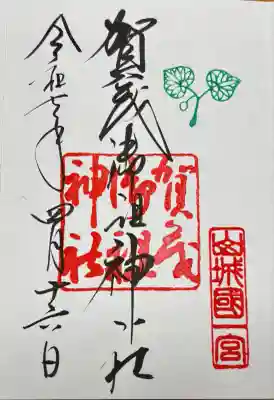 賀茂御祖神社
令和七年四月十六日
賀茂御祖神社
山城國一宮